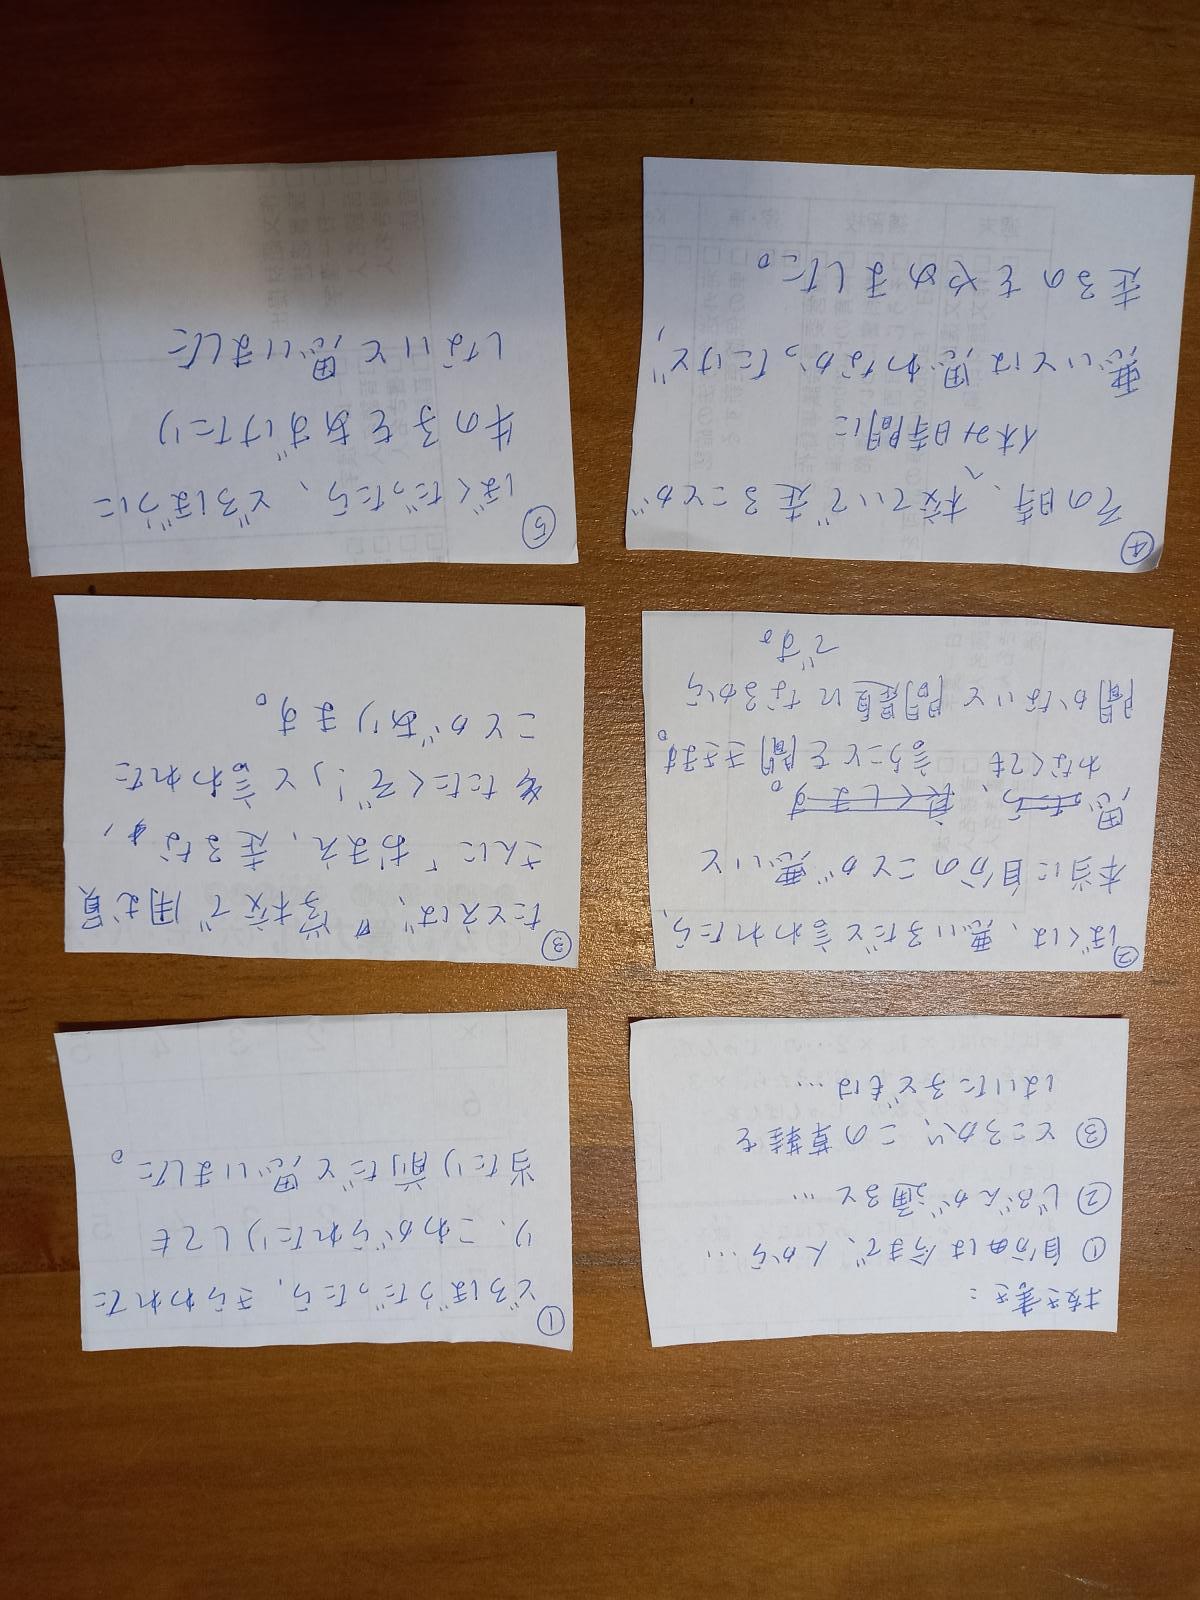 抜き書き:
①自分は今まで、人から…
②じぶんが通ると…
③ところが、この草鞋を
はいた子どもは…
①
どろぼうだったら、きらわれた
り、こわがられたりしても
当たり前だと思いました。
②
ぼくは、悪い子だと言われたら、
本当に自分のことが悪いと
思たら、良くします。
わなくても 言うことを聞きます。
聞かないと問題になるから
です。
③
たとえば、学校で用む員
さんに「おまえ、走るな、
たたくぞ!」と言われた
ことがあります。
④
その時、校ていで走ることが
休み時間に
悪いとは思わなかったけど、
走るのをやめました。
⑤
ぼくだったら、どろぼうに
牛の子をあずけたり
しないと思いました